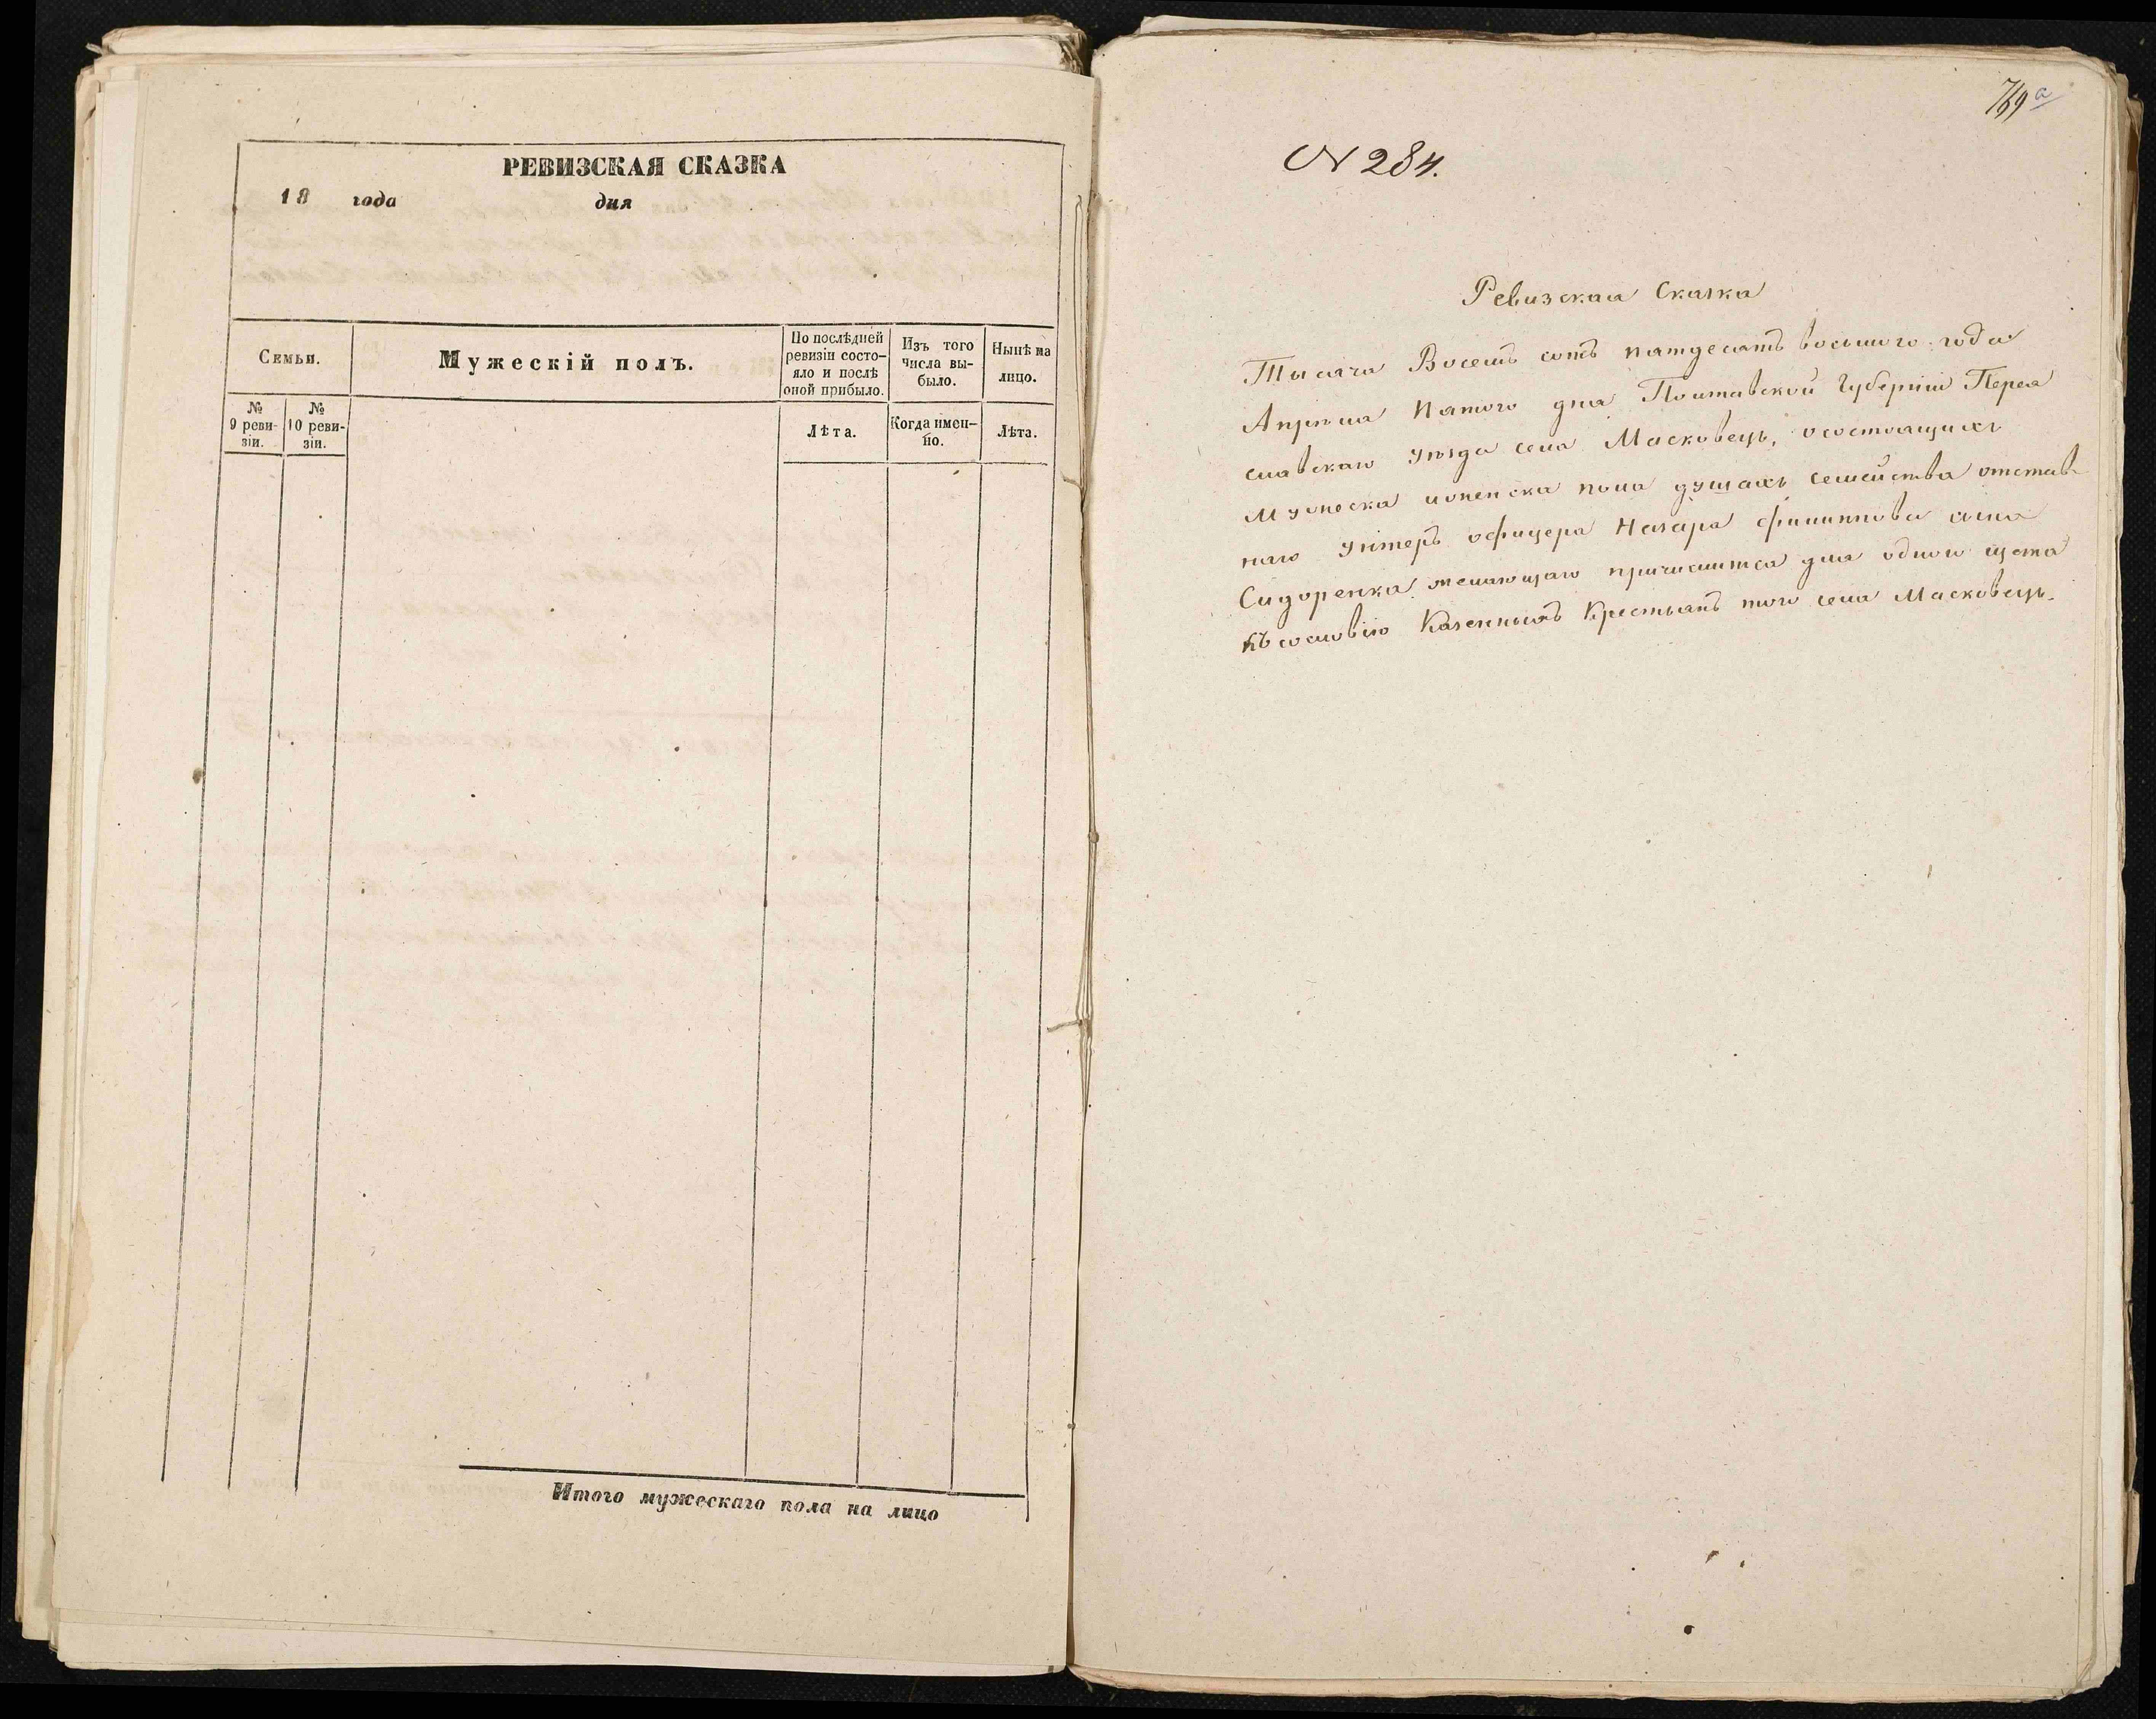 РЕВИЗСКАЯ СКАЗКА
18 года дня
Семьи.
Мужескій полъ.
По послѣдней
ревизіи состо-
яло и послѣ
оной прибыло.
Изъ того
числа вы-
было.
Нынѣ на
лицо.
№
9 реви-
зіи.
№
10 реви-
зіи.
Лѣта.
Когда имен-
но.
Лѣта.
Итого мужескаго пола на лицо
769 а
N 284.
Ревизская Сказка
Тысяча Восемъ сотъ пятдесятъ восьмого года
Апрѣля Пятого дня Полтавской Губерніи Перея
славскаго уѣзда села Масковець, о состоящихъ
мужеска и женска пола душахъ семейства отстав
наго унтеръ офицера Назара Филиппова сына
Сидоренка желающаго причислится для одного щета
къ сословію Казенныхъ Крестьянъ того села Масковець.